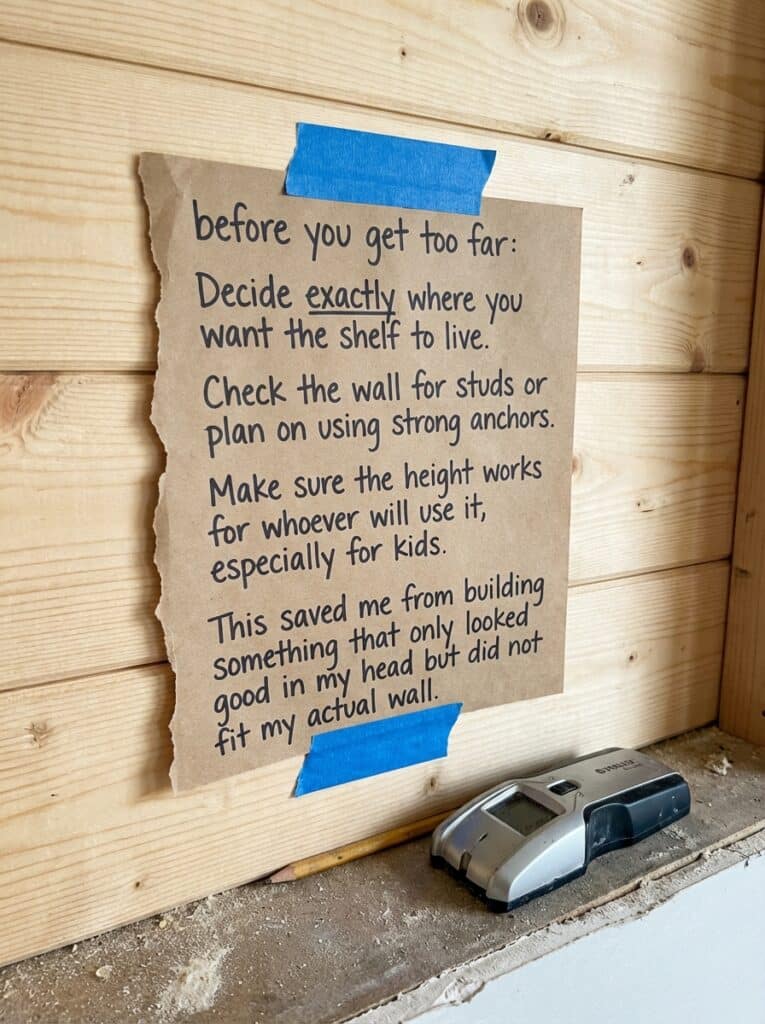 before you get too far:
Decide exactly where you
want the shelf to live.
Check the wall for studs or
plan on using strong anchors.
Make sure the height works
for whoever will use it,
especially for kids.
This saved me from building
something that only looked
good in my head but did not
fit my actual wall.